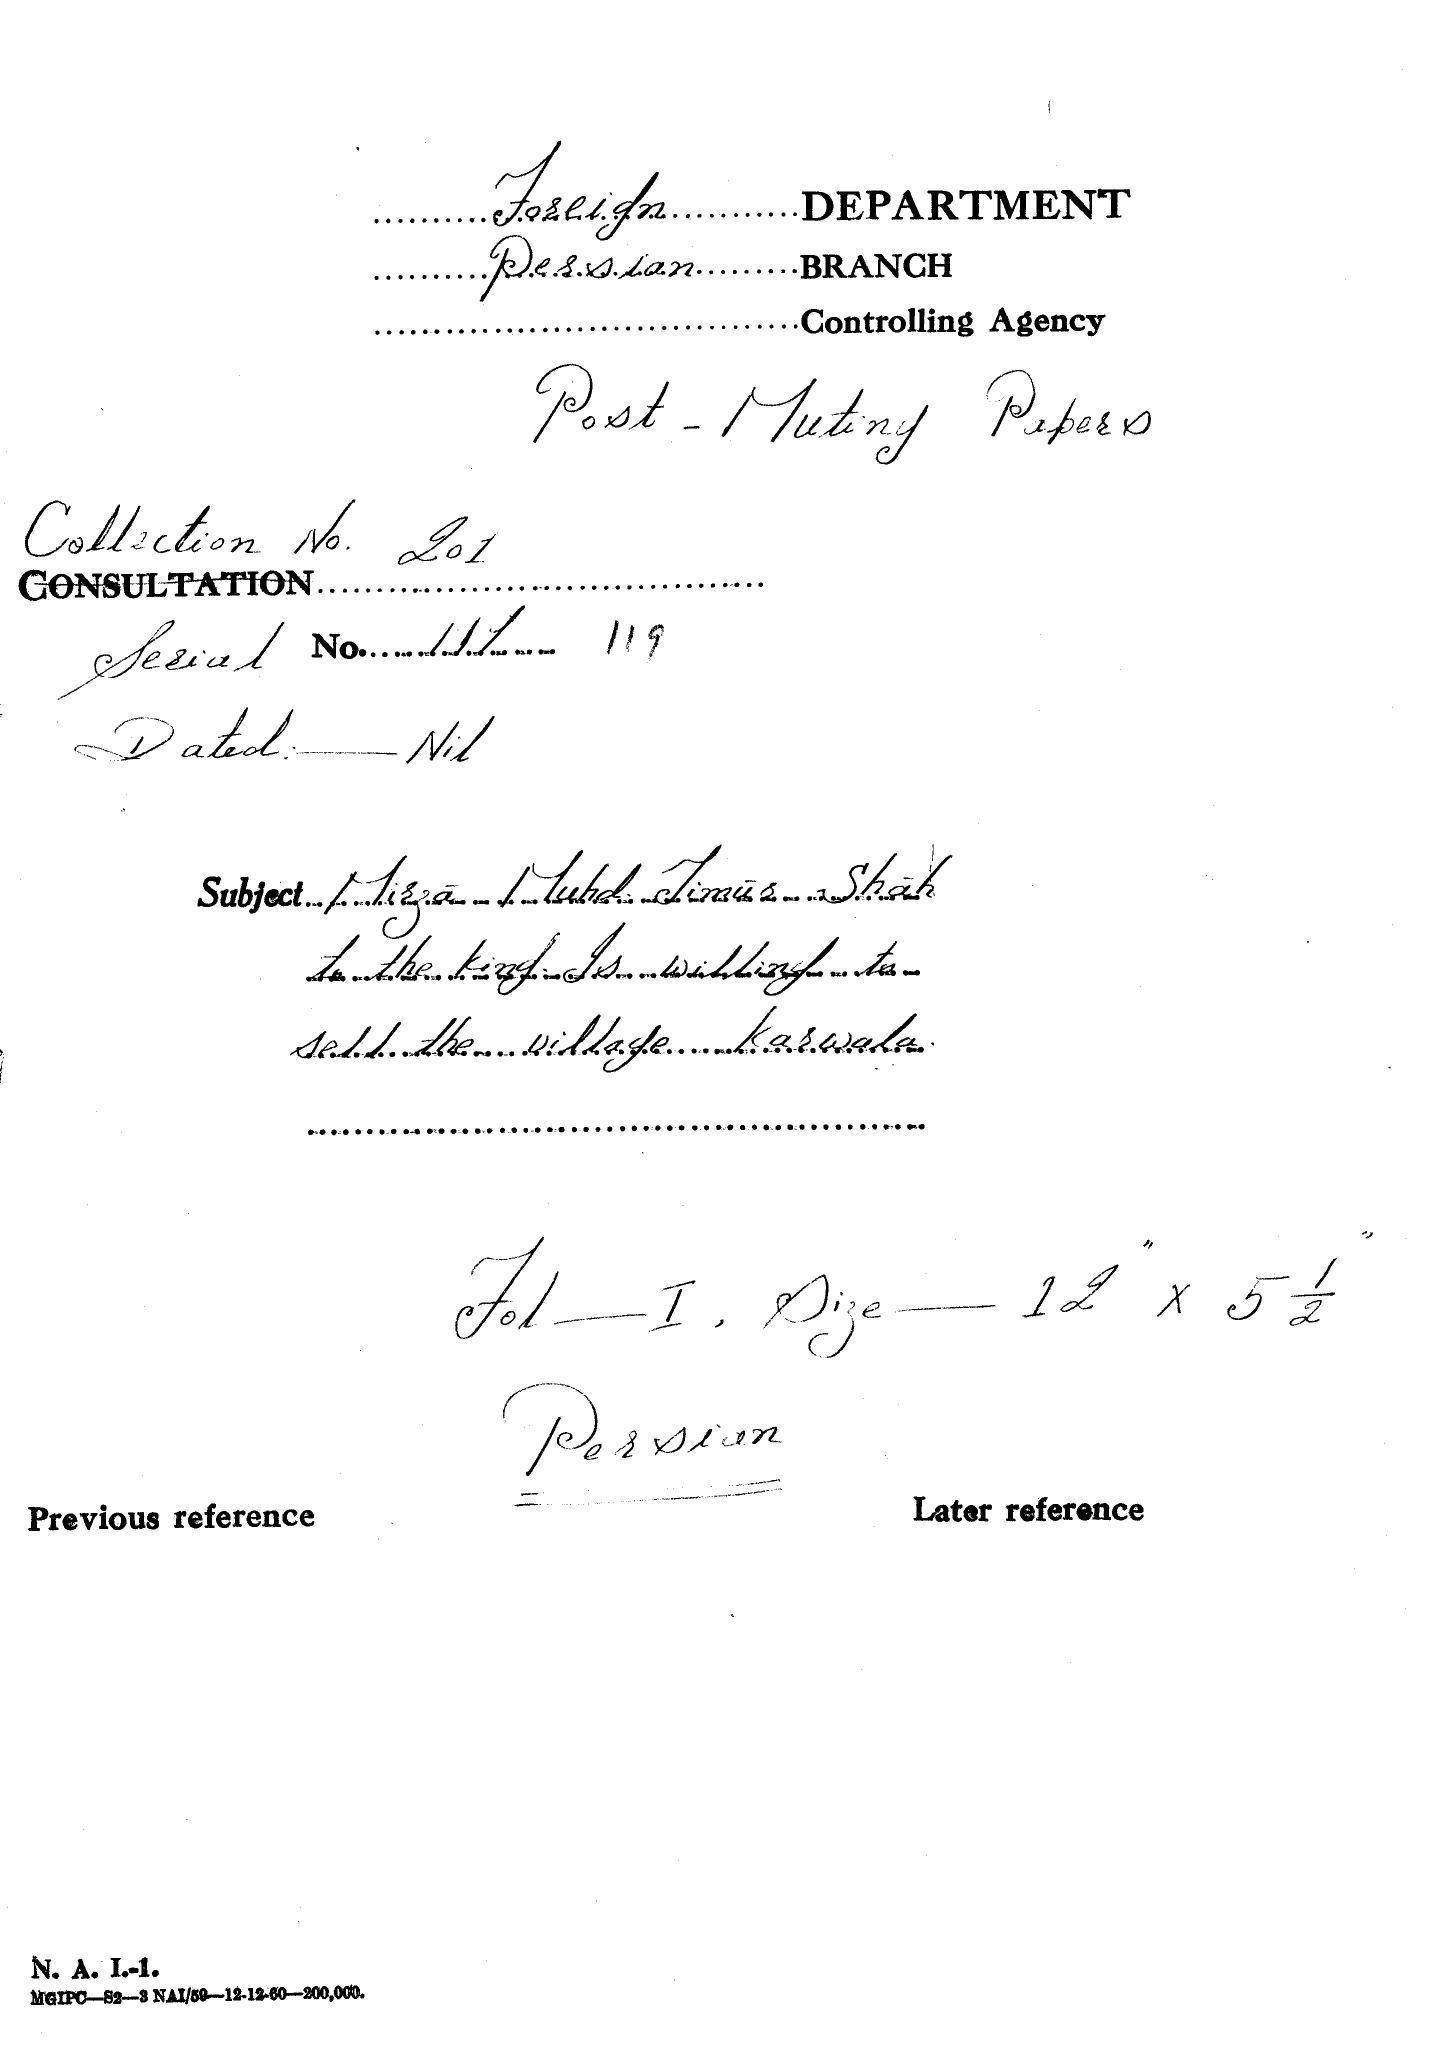 Foreign DEPARTMENT
Persian BRANCH
Controlling Agency
Post - Mutiny Papers
Collection No. 201
CONSULTATION
Serial No. 117 119
Dated:— Nil
Subject Mirzā Muhd. Timūr Shāh
to the king. Is willing to
sell the village Karwala.
Fol — I. Size — 12" x 5 1/2"
Persian
Previous reference Later reference
N. A. I.-1.
MGIPC—S2—3 NAI/59—12-12-60—200,000.